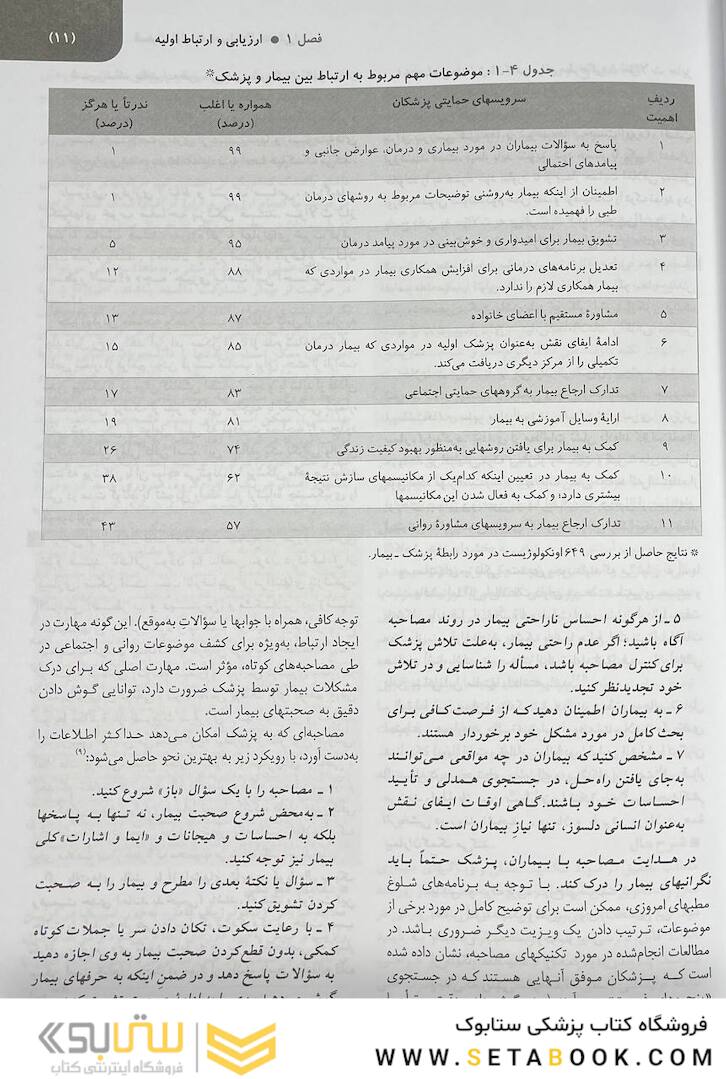 (۱۱)
فصل ۱ ● ارزیابی و ارتباط اولیه
جدول ۴-۱ : موضوعات مهم مربوط به ارتباط بین بیمار و پزشک*
ردیف اهمیت سرویسهای حمایتی پزشکان همواره یا اغلب (درصد) ندرتاً یا هرگز (درصد)
۱ پاسخ به سؤالات بیماران در مورد بیماری و درمان، عوارض جانبی و ۹۹ ۱
پیامدهای احتمالی
۲ اطمینان از اینکه بیمار به‌روشنی توضیحات مربوط به روشهای درمان ۹۹ ۱
طبی را فهمیده است.
۳ تشویق بیمار برای امیدواری و خوش‌بینی در مورد پیامد درمان ۹۵ ۵
۴ تعدیل برنامه‌های درمانی برای افزایش همکاری بیمار در مواردی که ۸۸ ۱۲
بیمار همکاری لازم را ندارد.
۵ مشاورهٔ مستقیم با اعضای خانواده ۸۷ ۱۳
۶ ادامهٔ ایفای نقش به‌عنوان پزشک اولیه در مواردی که بیمار درمان ۸۵ ۱۵
تکمیلی را از مرکز دیگری دریافت می‌کند.
۷ تدارک ارجاع بیمار به گروههای حمایتی اجتماعی ۸۳ ۱۷
۸ ارایهٔ وسایل آموزشی به بیمار ۸۱ ۱۹
۹ کمک به بیمار برای یافتن روشهایی به‌منظور بهبود کیفیت زندگی ۷۴ ۲۶
۱۰ کمک به بیمار در تعیین اینکه کدام‌یک از مکانیسمهای سازش نتیجهٔ ۶۲ ۳۸
بیشتری دارد؛ و کمک به فعال شدن این مکانیسمها
۱۱ تدارک ارجاع بیمار به سرویسهای مشاورهٔ روانی ۵۷ ۴۳
* نتایج حاصل از بررسی ۶۴۹ اونکولوژیست در مورد رابطهٔ پزشک ـ بیمار.
۵ ـ از هرگونه احساس ناراحتی بیمار در روند مصاحبه
آگاه باشید؛ اگر عدم راحتی بیمار، به‌علت تلاش پزشک
برای کنترل مصاحبه باشد، مسأله را شناسایی و در تلاش
خود تجدیدنظر کنید.
۶ ـ به بیماران اطمینان دهید که از فرصت کافی برای
بحث کامل در مورد مشکل خود برخوردار هستند.
۷ ـ مشخص کنید که بیماران در چه مواقعی می‌توانند
به‌جای یافتن راه‌حل، در جستجوی همدلی و تأیید
احساسات خود باشند. گاهی اوقات ایفای نقش
به‌عنوان انسانی دلسوز، تنها نیاز بیماران است.
در هدایت مصاحبه با بیماران، پزشک حتماً باید
نگرانیهای بیمار را درک کند. با توجه به برنامه‌های شلوغ
مطبهای امروزی، ممکن است برای توضیح کامل در مورد برخی از
موضوعات، ترتیب دادن یک ویزیت دیگر ضروری باشد. در
مطالعات انجام‌شده در مورد تکنیکهای مصاحبه، نشان داده شده
است که پزشکان موفق آنهایی هستند که در جستجوی
توجه کافی، همراه با جوابها یا سؤالاتِ به‌موقع). این گونه مهارت در
ایجاد ارتباط، به‌ویژه برای کشف موضوعات روانی و اجتماعی در
طی مصاحبه‌های کوتاه، مؤثر است. مهارت اصلی که برای درک
مشکلات بیمار توسط پزشک ضرورت دارد، توانایی گوش دادن
دقیق به صحبتهای بیمار است.
مصاحبه‌ای که به پزشک امکان می‌دهد حداکثر اطلاعات را
به‌دست آورد، با رویکرد زیر به بهترین نحو حاصل می‌شود:(۹)
۱ ـ مصاحبه را با یک سؤال «باز» شروع کنید.
۲ ـ به‌محض شروع صحبت بیمار، نه تنها به پاسخها
بلکه به احساسات و هیجانات و «ایما و اشارات» کلی
بیمار نیز توجه کنید.
۳ ـ سؤال یا نکتهٔ بعدی را مطرح و بیمار را به صحبت
کردن تشویق کنید.
۴ ـ با رعایت سکوت، تکان دادن سر یا جملات کوتاه
کمکی، بدون قطع کردن صحبت بیمار به وی اجازه دهید
به سؤالات پاسخ دهد و در ضمن اینکه به حرفهای بیمار
فروشگاه کتاب پزشکی ستابوک
WWW.SETABOOK.COM
ستابوک
فروشگاه اینترنتی کتاب